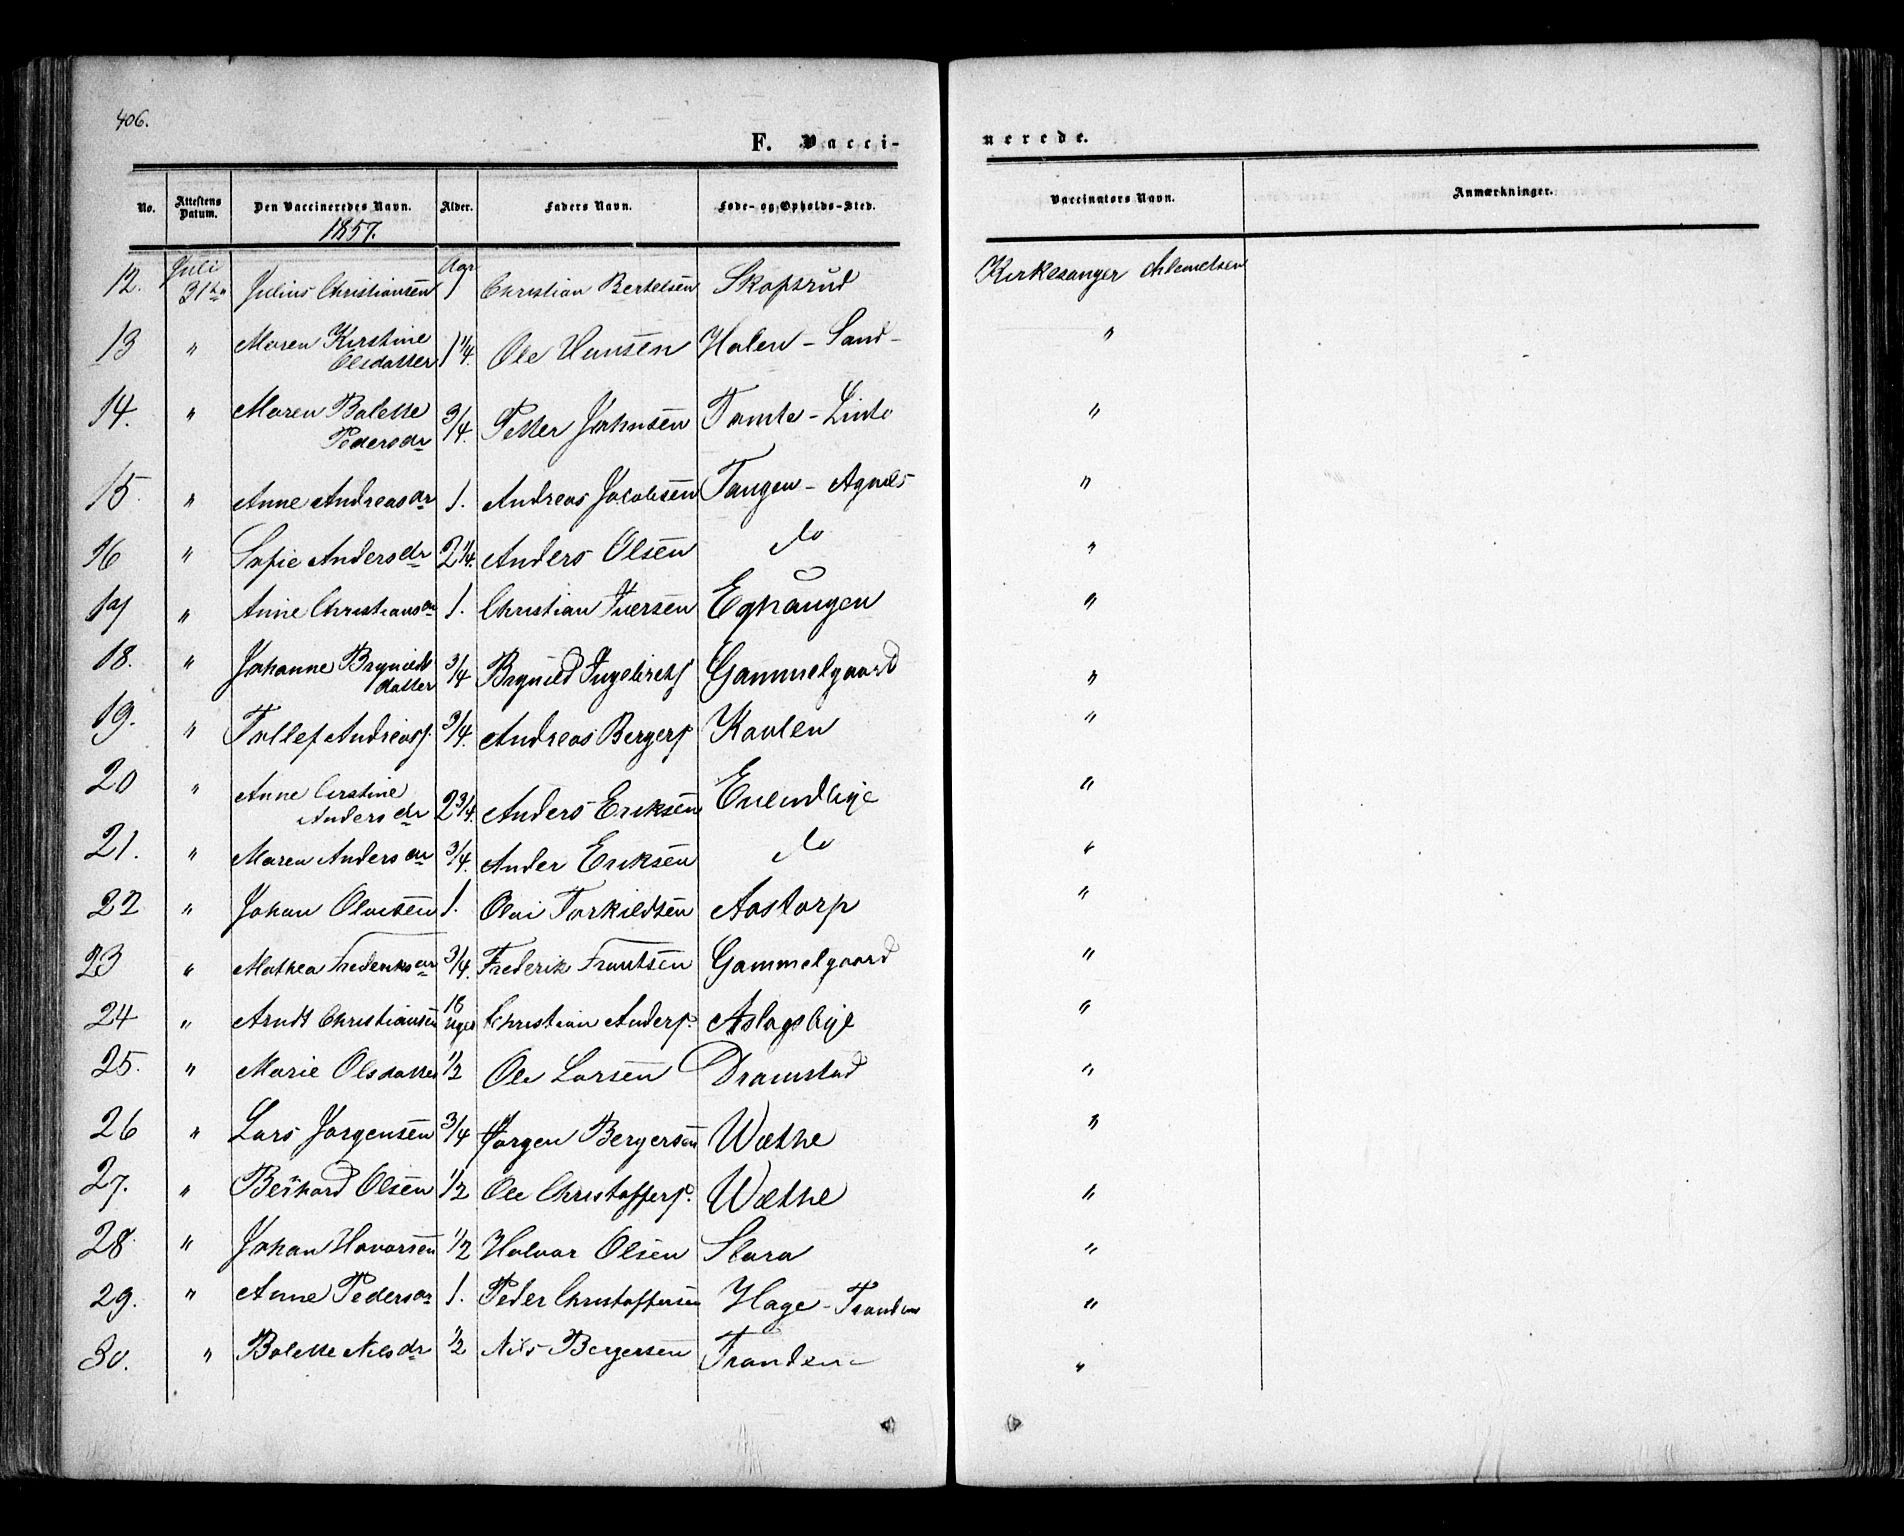 406.
F. Vacci-
nerede.
No. Attestens Datum. Den Vaccineredes Navn. Alder. Faders Navn. Føde- og Opholds-Sted. Vaccinators Navn. Anmærkninger.
1857.
12. Juli 31te Julius Christiansen 1 Aar Christian Bertelsen Skopsrud Kirkesanger
13 " Maren Kirstine Olsdatter 1 1/4. Ole Hansen Holen - Sand - "
14. " Maren Bolette Pedersdr 3/4. Petter Johnsen Tomte - Linto "
15. " Anne Andreasdr 1. Andreas Jacobsen Tangen - Agnes "
16 " Sofie Andersdr 2 1/4. Anders Olsen do "
17 " Anne Christiansdr 1. Christian Iversen "
18. " Johanne Brynilds datter 3/4 Brynild Ingebretsf Gammelgaard "
19. " Tollef Andreasf. 3/4. Andreas Bergerf Kaolen "
20 " Anne Cirstine Andersdr 2 3/4. Anders Eriksen "
21. " Maren Andersdr 3/4. Ander Eriksen do "
22 " Johan Olavsen 1. Olai Torkildsen Aastorp "
23 " Mathea Frederiksdr 3/4. Frederik Frantsen Gammelgaard "
24 " Arndt Christiansen 18 Uger Christian Andersf. Aslagsbye "
25. " Marie Olsdatter 1/2 Ole Larsen Dramstad "
26 " Lars Jørgensen 3/4 Jørgen Bergersen Wæthe "
27. " Bernhard Olsen 1/2 Ole Christoffersf. Wæthe "
28 " Johan Havorsen 1/2 Halvor Olsen Slora "
29. " Anne Pedersdr 1. Peder Christoffersen Hage - "
30. " Bolette Nilsdr 1/2 Nils Bergersen Trandsen "